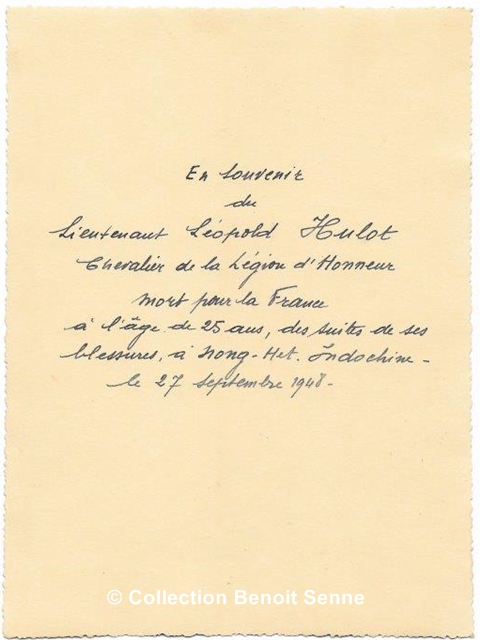 En souvenir
du
Lieutenant Léopold Hulot
Chevalier de la Légion d'Honneur
mort pour la France
à l'âge de 25 ans, des suites de ses
blessures, à Nong-Het. Indochine -
le 27 septembre 1948 -
© Collection Benoit Senne